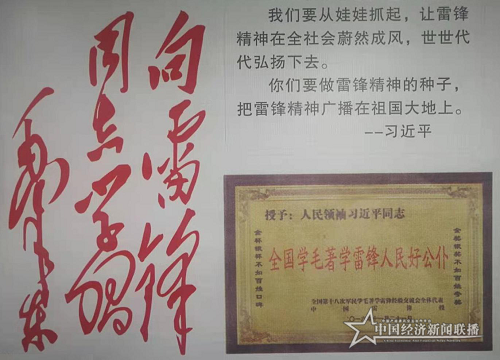 向雷锋
同志学习
毛泽东
我们要从娃娃抓起，让雷锋
精神在全社会蔚然成风，世世代
代弘扬下去。
你们要做雷锋精神的种子，
把雷锋精神广播在祖国大地上。
--习近平
授予：人民领袖习近平同志
全国学毛著学雷锋人民好公仆
金杯银杯不如百姓口碑
金奖银奖不如百姓夸奖
中国经济新闻联播